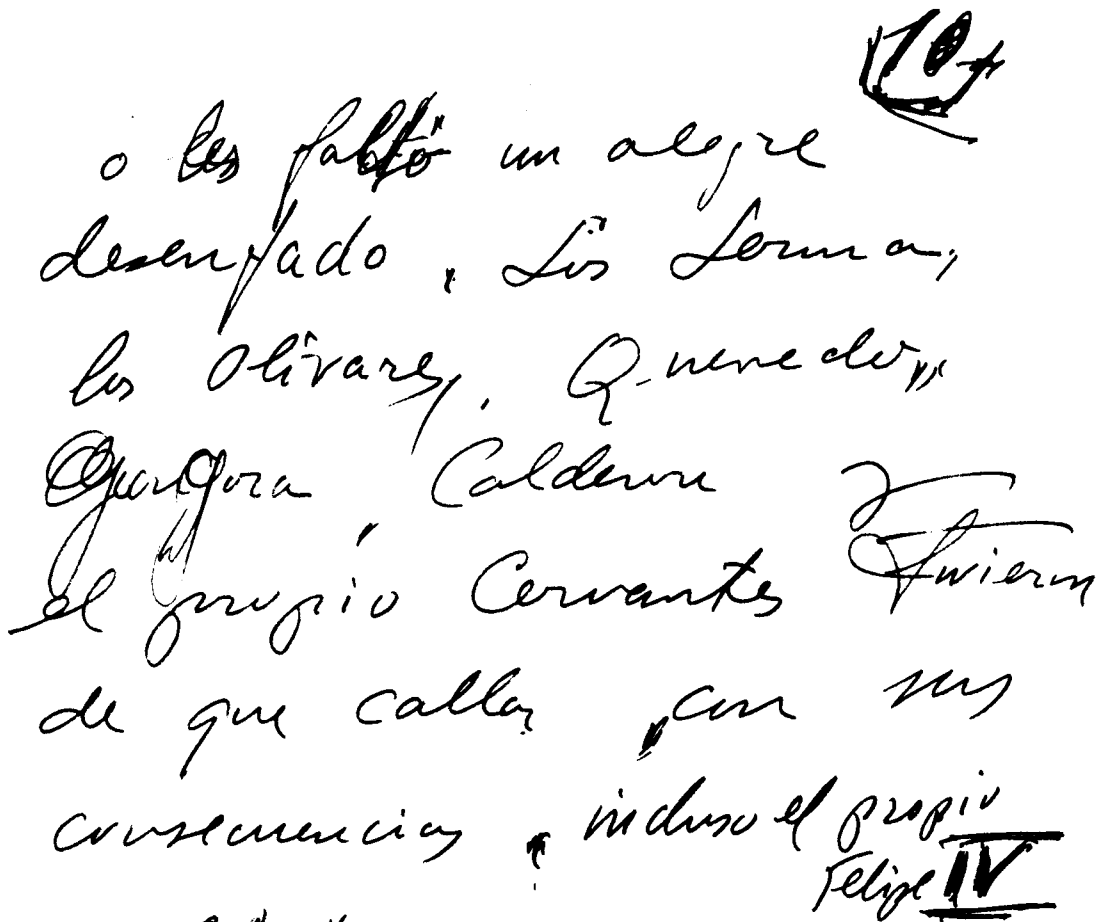 10
o les faltó un alegre
desenfado. Los Lerma,
los Olivares, Quevedo,
Gongora Calderon y
el propio Cervantes tuvieron
de que callar, con sus
consecuencias, incluso el propio
Felipe IV